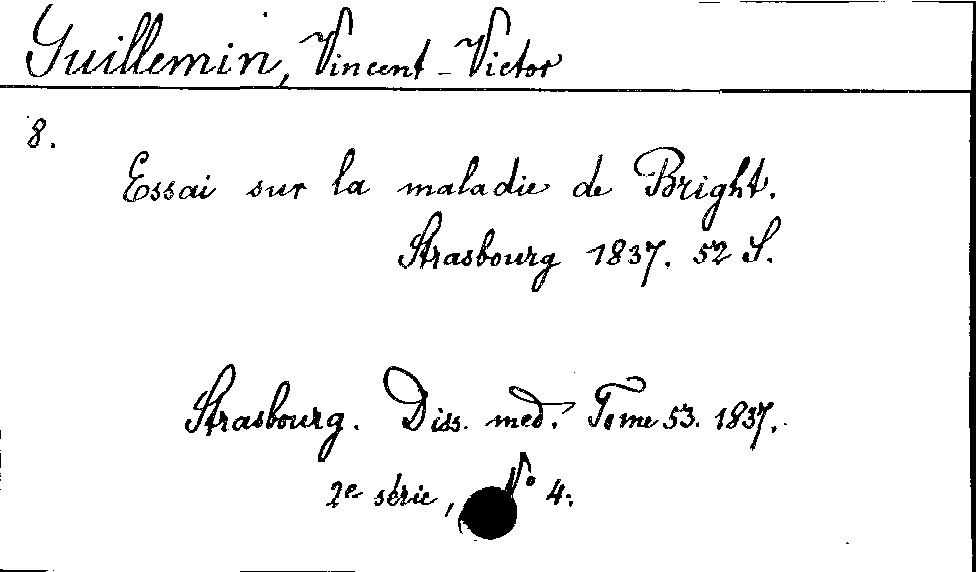 Guillemin, Vincent-Victor
8.
Essai sur la maladie de Bright.
Strasbourg 1837. 52 S.
Strasbourg. Diss. med. Tome 53. 1837.
2e série, No 4.